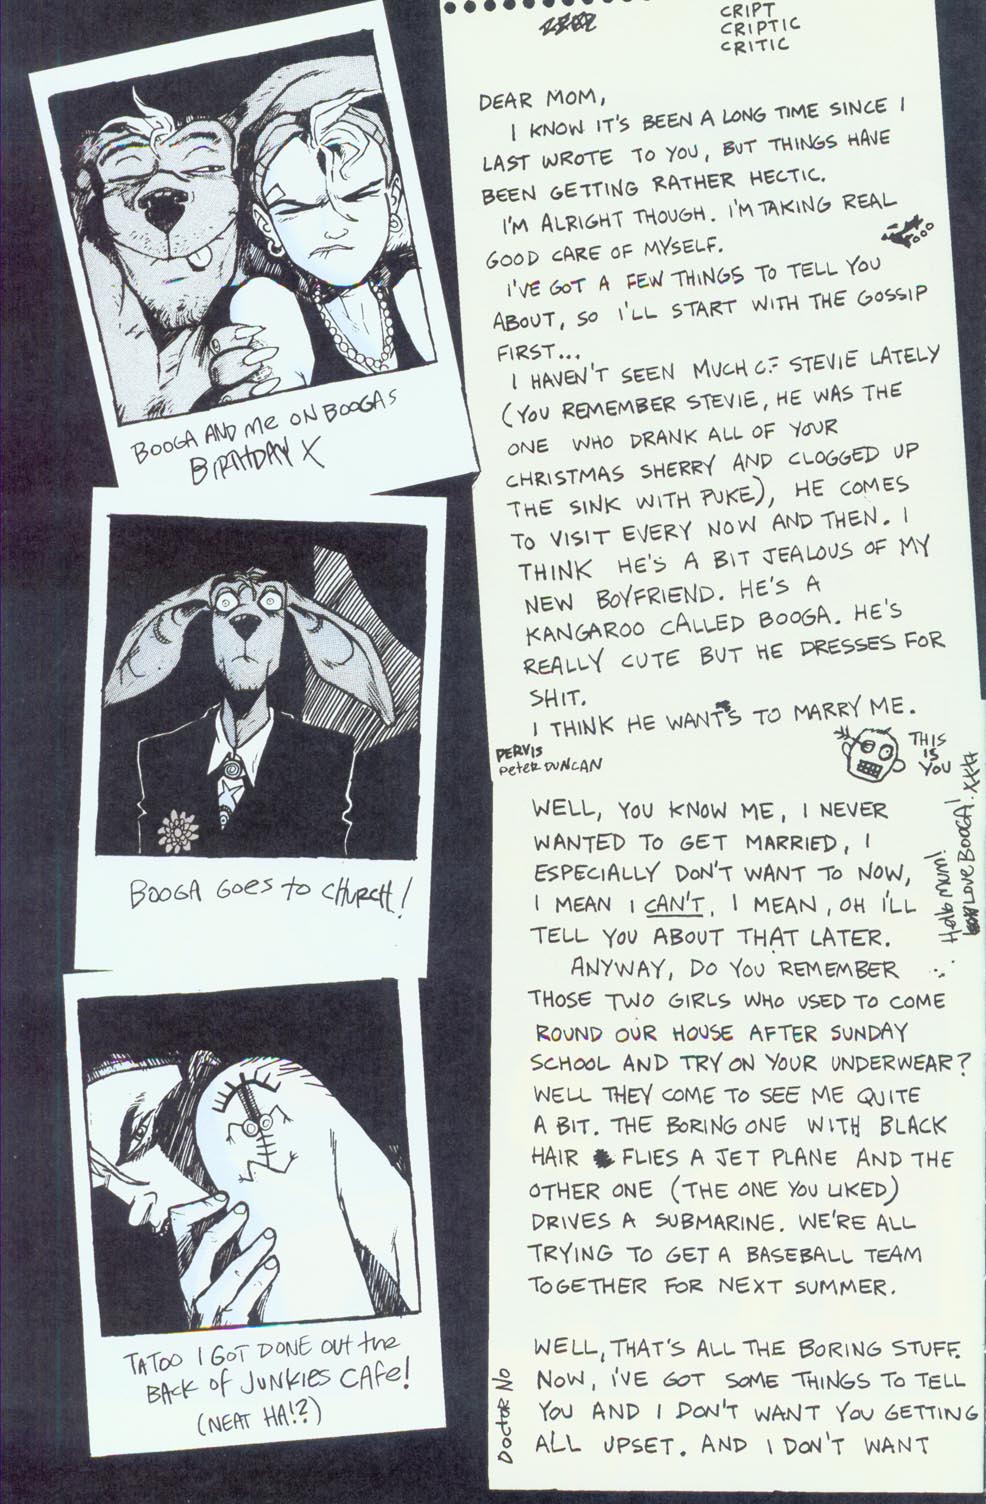 CRIPT
CRIPTIC
CRITIC
DEAR MOM,
I KNOW IT'S BEEN A LONG TIME SINCE I
LAST WROTE TO YOU, BUT THINGS HAVE
BEEN GETTING RATHER HECTIC.
I'M ALRIGHT THOUGH. I'M TAKING REAL
GOOD CARE OF MYSELF.
I'VE GOT A FEW THINGS TO TELL YOU
ABOUT, SO I'LL START WITH THE GOSSIP
FIRST...
I HAVEN'T SEEN MUCH OF STEVIE LATELY
(YOU REMEMBER STEVIE, HE WAS THE
ONE WHO DRANK ALL OF YOUR
CHRISTMAS SHERRY AND CLOGGED UP
THE SINK WITH PUKE), HE COMES
TO VISIT EVERY NOW AND THEN. I
THINK HE'S A BIT JEALOUS OF MY
NEW BOYFRIEND. HE'S A
KANGAROO CALLED BOOGA. HE'S
REALLY CUTE BUT HE DRESSES FOR
SHIT.
I THINK HE WANTS TO MARRY ME.
PERVIS
PETER DUNCAN
THIS
IS
YOU
WELL, YOU KNOW ME, I NEVER
WANTED TO GET MARRIED, I
ESPECIALLY DON'T WANT TO NOW,
I MEAN I CAN'T, I MEAN, OH I'LL
TELL YOU ABOUT THAT LATER.
ANYWAY, DO YOU REMEMBER
THOSE TWO GIRLS WHO USED TO COME
ROUND OUR HOUSE AFTER SUNDAY
SCHOOL AND TRY ON YOUR UNDERWEAR?
WELL THEY COME TO SEE ME QUITE
A BIT. THE BORING ONE WITH BLACK
HAIR FLIES A JET PLANE AND THE
OTHER ONE (THE ONE YOU LIKED)
DRIVES A SUBMARINE. WE'RE ALL
TRYING TO GET A BASEBALL TEAM
TOGETHER FOR NEXT SUMMER.
WELL, THAT'S ALL THE BORING STUFF.
NOW, I'VE GOT SOME THINGS TO TELL
YOU AND I DON'T WANT YOU GETTING
ALL UPSET. AND I DON'T WANT
Hello mum!
LOVE BOOGA! XXX
DOCTOR NO
BOOGA AND ME ON BOOGAS
BIRTHDAY X
BOOGA GOES TO CHURCH!
TATOO I GOT DONE OUT the
BACK OF JUNKIES CAFE!
(NEAT HA!?)